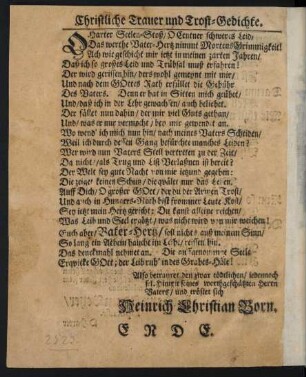 Christliche Trauer und Trost-Gedichte.
Harter Seelen-Stoß, O Centner schweres Leid,
Das werthe Vater-Hertz nimmt Mortens Grimmigkeit!
Ach wie geschicht mir jetz in meinen zarten Jahren,
Daß ich so grosses Leid und Trübsal muß erfahren!
Der wird gerissen hin, ders wohl gemeynt mit mir,
Und nach dem GOttes Rath erfüllet die Gebühr
Des Vaters. Dem er hat in Sitten mich geübet,
Und, daß ich in der Lehr gewachsen, auch beliebet.
Der fället nun dahin, der mir viel Guts gethan,
Und, was er mir vermacht, hier mir gewend't an.
Wo wend' ich mich nun hin, nach meines Vaters Scheiden,
Weil ich durch dessen Gang befürchte manches Leiden?
Wer wird nun Vaters Stell vertreten zu der Zeit,
Da nichts, als Trug und List Verlassnen ist bereit?
Der Welt sey gute Nacht von mir jetzund gegeben:
Die zeiget keinen Schutz, die quälet nur das Leben,
Auff Dich, O grosser GOtt, der du der Armen Trost,
Und auch in Hungers-Noth bist frommer Leute Kost,
Sey jetzt mein Hertz gericht: Du kanst alleine reichen,
Was Leib und Seel ergötzt, was nicht wird von mir weichen!
Euch aber, Vater-Hertz, soll nichts aus meinem Sinn,
So lang ein Athem haucht im Leibe, reissen hin.
Das denckmahl nehmet an. Die auffgenommne Seele
Erqvicke GOtt; der Leib ruh' in des Grabes-Höle!
Also betrauret den zwar tödtlichen, jedennoch
sel. Hintritt seines werthgeschätzten Herrn
Vaters, und tröstet sich
Heinrich Christian Born.
E N D E.